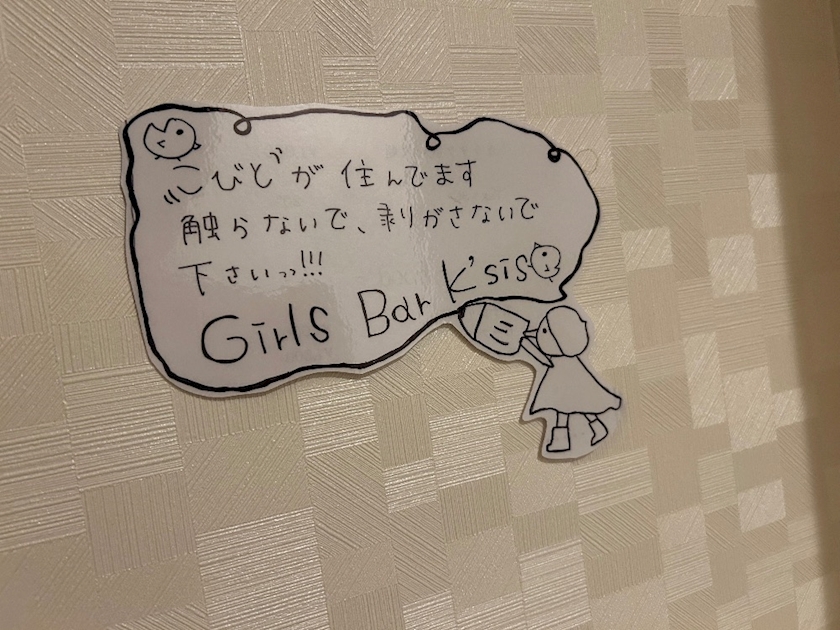 "こびと"が住んでます
触らないで、剥りがさないで
下さいっっ!!!
Girls Bar K'sis